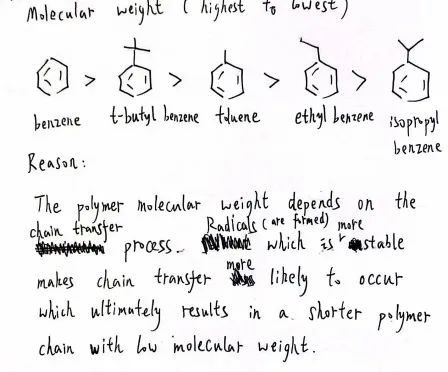 Molecular weight (highest to lowest)
> > > >
benzene t-butyl benzene toluene ethyl benzene isopropyl
benzene
Reason:
The polymer molecular weight depends on the
chain transfer process. Radicals (are formed) which is more stable
makes chain transfer more likely to occur
which ultimately results in a shorter polymer
chain with low molecular weight.